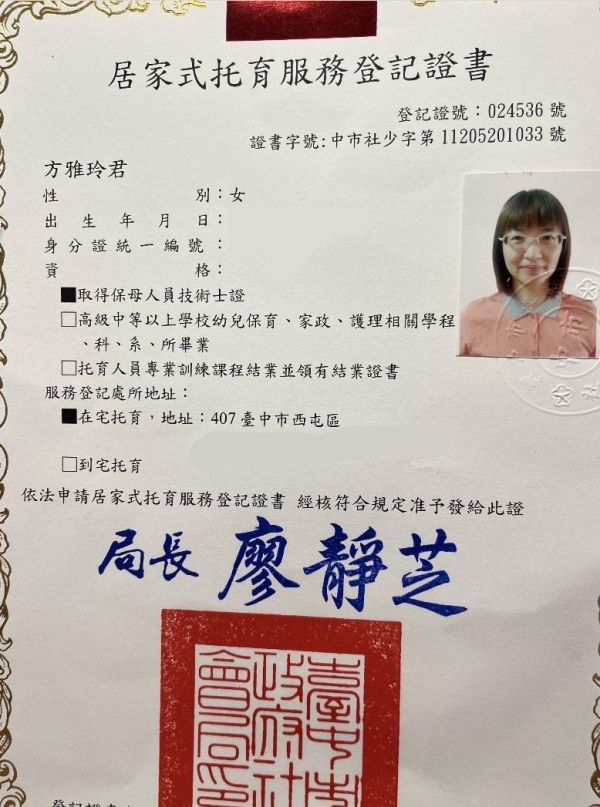 居家式托育服務登記證書
登記證號：024536 號
證書字號:中市社少字第 11205201033 號
方雅玲君
性別：女
出生年月日：
身分證統一編號：
資格：
■取得保母人員技術士證
□高級中等以上學校幼兒保育、家政、護理相關學程
、科、系、所畢業
□托育人員專業訓練課程結業並領有結業證書
服務登記處所地址：
■在宅托育，地址：407 臺中市西屯區
□到宅托育
依法申請居家式托育服務登記證書 經核符合規定准予發給此證
局長 廖靜芝
臺中市
政府社
會局印